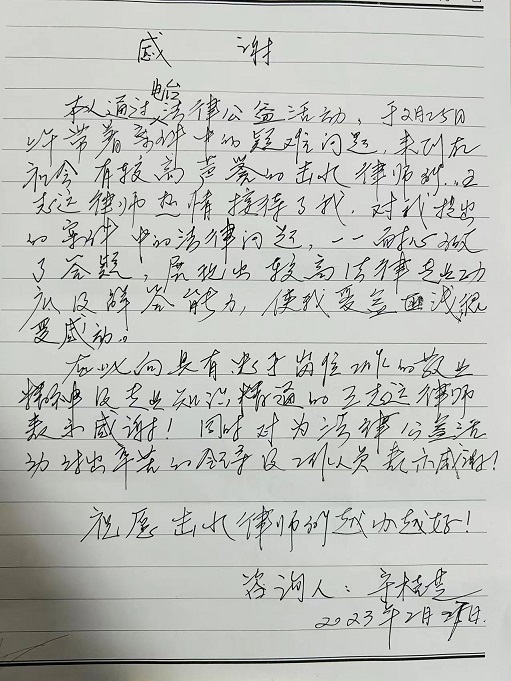 感谢
本人通过电台法律公益活动，于2月25日
上午带着案件中的疑难问题，来到在
社会有较高声誉的出水律师所，王
志远律师热情接待了我，对我提出
的案件中的法律问题，一一耐心做
了答题，展现出较高法律专业功
底及解答能力，使我受益匪浅很
受感动。
在此向具有忠于岗位工作的敬业
精神及专业知识精通的王志远律师
表示感谢！同时对为法律公益活
动付出辛苦的领导及工作人员表示感谢！
祝愿出水律师所越办越好！
咨询人：辛桂芝
2023年2月27日.